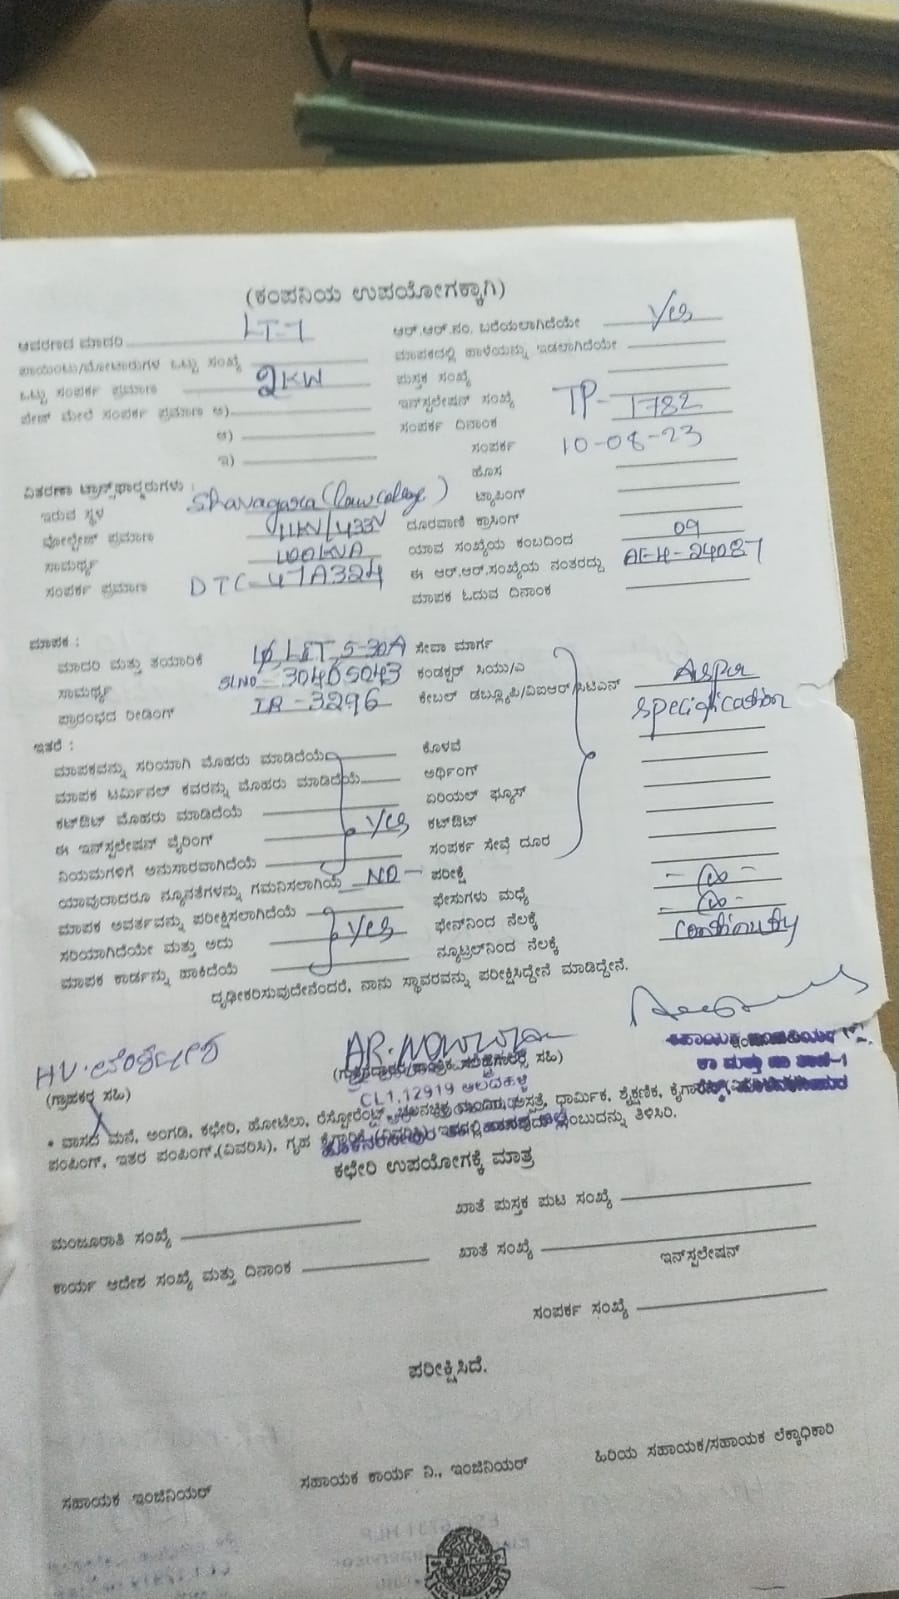 (ಕಂಪನಿಯ ಉಪಯೋಗಕ್ಕಾಗಿ)
ಆವರಣದ ಮಾದರಿ LT-1
ಪಾಯಿಂಟು/ಮೋಟಾರುಗಳ ಒಟ್ಟು ಸಂಖ್ಯೆ
ಒಟ್ಟು ಸಂಪರ್ಕ ಪ್ರಮಾಣ 2KW
ಪೇಜ್ ಮೇಲೆ ಸಂಪರ್ಕ ಪ್ರಮಾಣ ಅ)
ಆ)
ಇ)
ವಿತರಣಾ ಟ್ರಾನ್ಸ್‌ಫಾರ್ಮರುಗಳು :
ಇರುವ ಸ್ಥಳ Shavagara (law college)
ವೋಲ್ಟೇಜ್ ಪ್ರಮಾಣ 11KV/433V
ಸಾಮರ್ಥ್ಯ 100KVA
ಸಂಪರ್ಕ ಪ್ರಮಾಣ DTC-47A324
ಆರ್.ಆರ್.ನಂ. ಬರೆಯಲಾಗಿದೆಯೇ Yes
ಮಾಪಕದಲ್ಲಿ ಹಾಳೆಯನ್ನು ಇಡಲಾಗಿದೆಯೇ
ಪುಸ್ತಕ ಸಂಖ್ಯೆ
ಇನ್‌ಸ್ಟಲೇಷನ್ ಸಂಖ್ಯೆ TP-1782
ಸಂಪರ್ಕ ದಿನಾಂಕ
ಸಂಪರ್ಕ 10-08-23
ಹೊಸ
ಟ್ಯಾಪಿಂಗ್
ದೂರವಾಣಿ ಕ್ರಾಸಿಂಗ್
ಯಾವ ಸಂಖ್ಯೆಯ ಕಂಬದಿಂದ 09
ಈ ಆರ್.ಆರ್.ಸಂಖ್ಯೆಯ ನಂತರದ್ದು AEH-24087
ಮಾಪಕ ಓದುವ ದಿನಾಂಕ
ಮಾಪಕ :
ಮಾದರಿ ಮತ್ತು ತಯಾರಿಕೆ 1φ, L&T, 5-30A
ಸಾಮರ್ಥ್ಯ SLNO-30405043
ಪ್ರಾರಂಭದ ರೀಡಿಂಗ್ IR-3296
ಇತರೆ :
ಮಾಪಕವನ್ನು ಸರಿಯಾಗಿ ಮೊಹರು ಮಾಡಿದೆಯೆ
ಮಾಪಕ ಟರ್ಮಿನಲ್ ಕವರನ್ನು ಮೊಹರು ಮಾಡಿದೆಯೆ
ಕಟ್‌ಔಟ್ ಮೊಹರು ಮಾಡಿದೆಯೆ
ಈ ಇನ್‌ಸ್ಟಲೇಷನ್ ವೈರಿಂಗ್ Yes
ನಿಯಮಗಳಿಗೆ ಅನುಸಾರವಾಗಿದೆಯೆ
ಯಾವುದಾದರೂ ನ್ಯೂನತೆಗಳನ್ನು ಗಮನಿಸಲಾಗಿಯೆ NO-
ಮಾಪಕ ಅವರ್ತವನ್ನು ಪರೀಕ್ಷಿಸಲಾಗಿದೆಯೆ
ಸರಿಯಾಗಿದೆಯೇ ಮತ್ತು ಅದು Yes
ಮಾಪಕ ಕಾರ್ಡನ್ನು ಹಾಕಿದೆಯೆ
ಸೇವಾ ಮಾರ್ಗ
ಕಂಡಕ್ಟರ್ ಸಿಯು/ಎ Asper
ಕೇಬಲ್ ಡಬ್ಲ್ಯೂಪಿ/ವಿಐಆರ್/ಸಿಟಿಎನ್ Specification
ಕೊಳವೆ
ಅರ್ಥಿಂಗ್
ಏರಿಯಲ್ ಫ್ಯೂಸ್
ಕಟ್‌ಔಟ್
ಸಂಪರ್ಕ ಸೇವೆ ದೂರ
ಪರೀಕ್ಷೆ
ಫೇಸುಗಳು ಮಧ್ಯೆ -∞-
ಫೇಸ್‌ನಿಂದ ನೆಲಕ್ಕೆ -∞-
ನ್ಯೂಟ್ರಲ್‌ನಿಂದ ನೆಲಕ್ಕೆ continuity
ದೃಢೀಕರಿಸುವುದೇನೆಂದರೆ, ನಾನು ಸ್ಥಾವರವನ್ನು ಪರೀಕ್ಷಿಸಿದ್ದೇನೆ ಮಾಡಿದ್ದೇನೆ.
(ಗ್ರಾಹಕರ ಸಹಿ)
ಸಹಿ)
CL1.12919
• ವಾಸದ ಮನೆ, ಅಂಗಡಿ, ಕಛೇರಿ, ಹೋಟೆಲು, ರೆಸ್ಟೋರೆಂಟ್, ಧಾರ್ಮಿಕ, ಶೈಕ್ಷಣಿಕ,
ಪಂಪಿಂಗ್, ಇತರ ಪಂಪಿಂಗ್,(ವಿವರಿಸಿ), ಗೃಹ ಕೈಗಾರಿಕೆ (ವಿವರಿಸಿ) ಎಂಬುದನ್ನು ತಿಳಿಸಿರಿ.
ಕಛೇರಿ ಉಪಯೋಗಕ್ಕೆ ಮಾತ್ರ
ಮಂಜೂರಾತಿ ಸಂಖ್ಯೆ
ಖಾತೆ ಪುಸ್ತಕ ಪುಟ ಸಂಖ್ಯೆ
ಕಾರ್ಯ ಆದೇಶ ಸಂಖ್ಯೆ ಮತ್ತು ದಿನಾಂಕ
ಖಾತೆ ಸಂಖ್ಯೆ
ಇನ್‌ಸ್ಟಲೇಷನ್
ಸಂಪರ್ಕ ಸಂಖ್ಯೆ
ಪರೀಕ್ಷಿಸಿದೆ.
ಸಹಾಯಕ ಇಂಜಿನಿಯರ್
ಸಹಾಯಕ ಕಾರ್ಯ ನಿ., ಇಂಜಿನಿಯರ್
ಹಿರಿಯ ಸಹಾಯಕ/ಸಹಾಯಕ ಲೆಕ್ಕಾಧಿಕಾರಿ